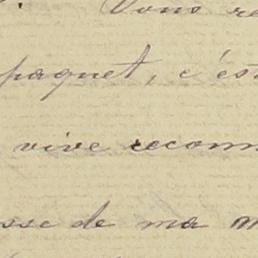 Vous re
paquet, c'est
vive reconn
sse de ma m